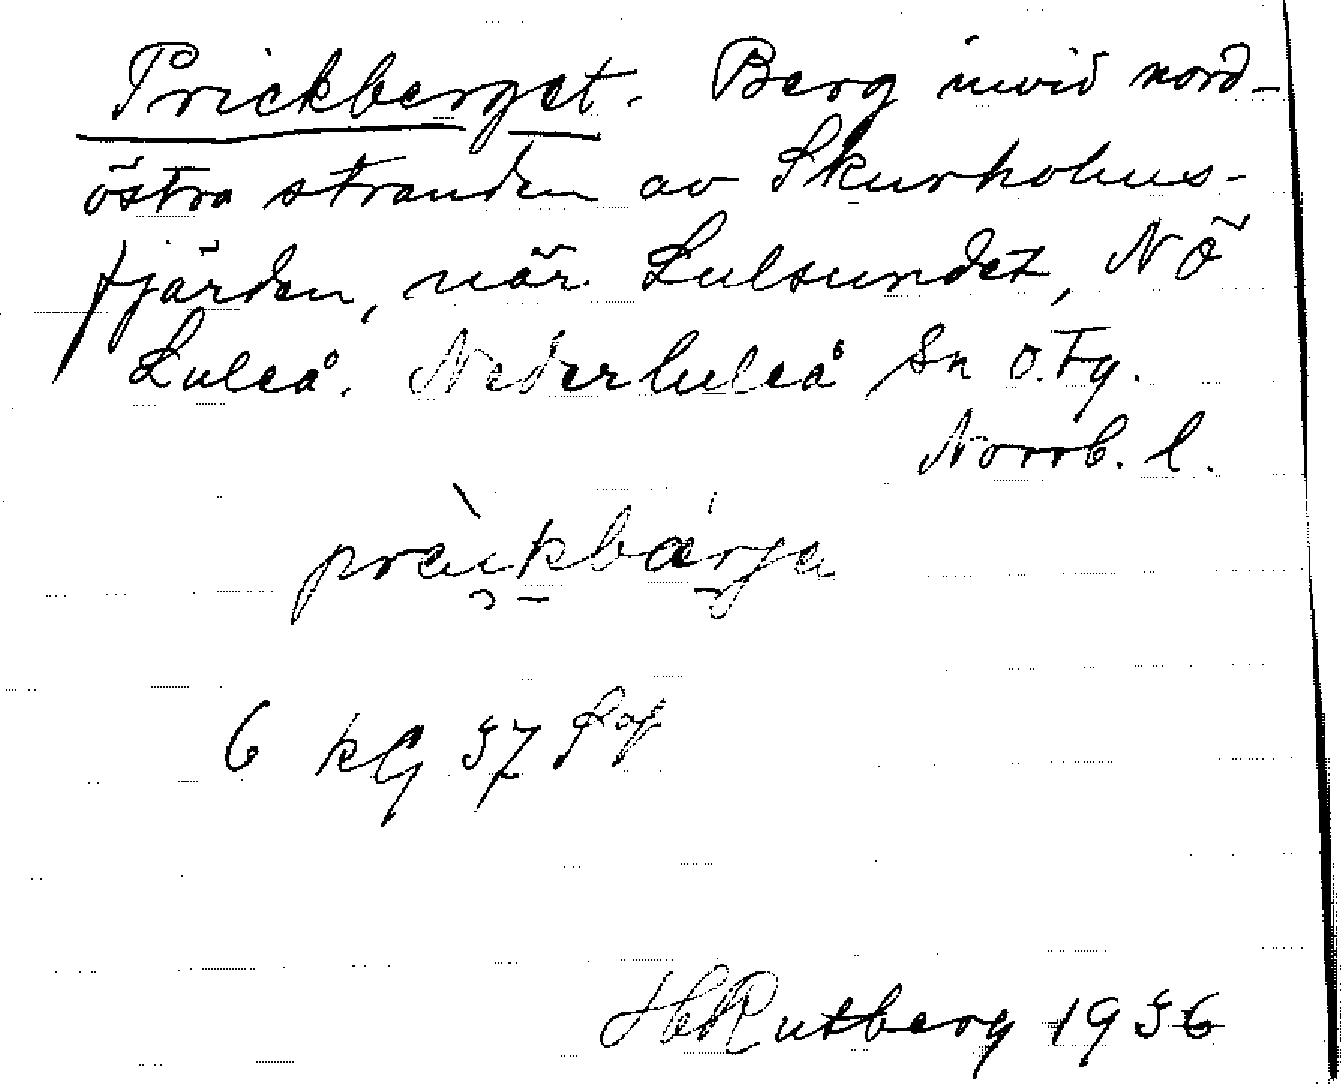 Prickberget. Berg invid nord-
östra stranden av Skurholms-
fjärden, när Lulsundet, NÖ
Luleå. Nederluleå sn o. Fg.
Norrb. l.
6 kG 57
HRutberg 1956